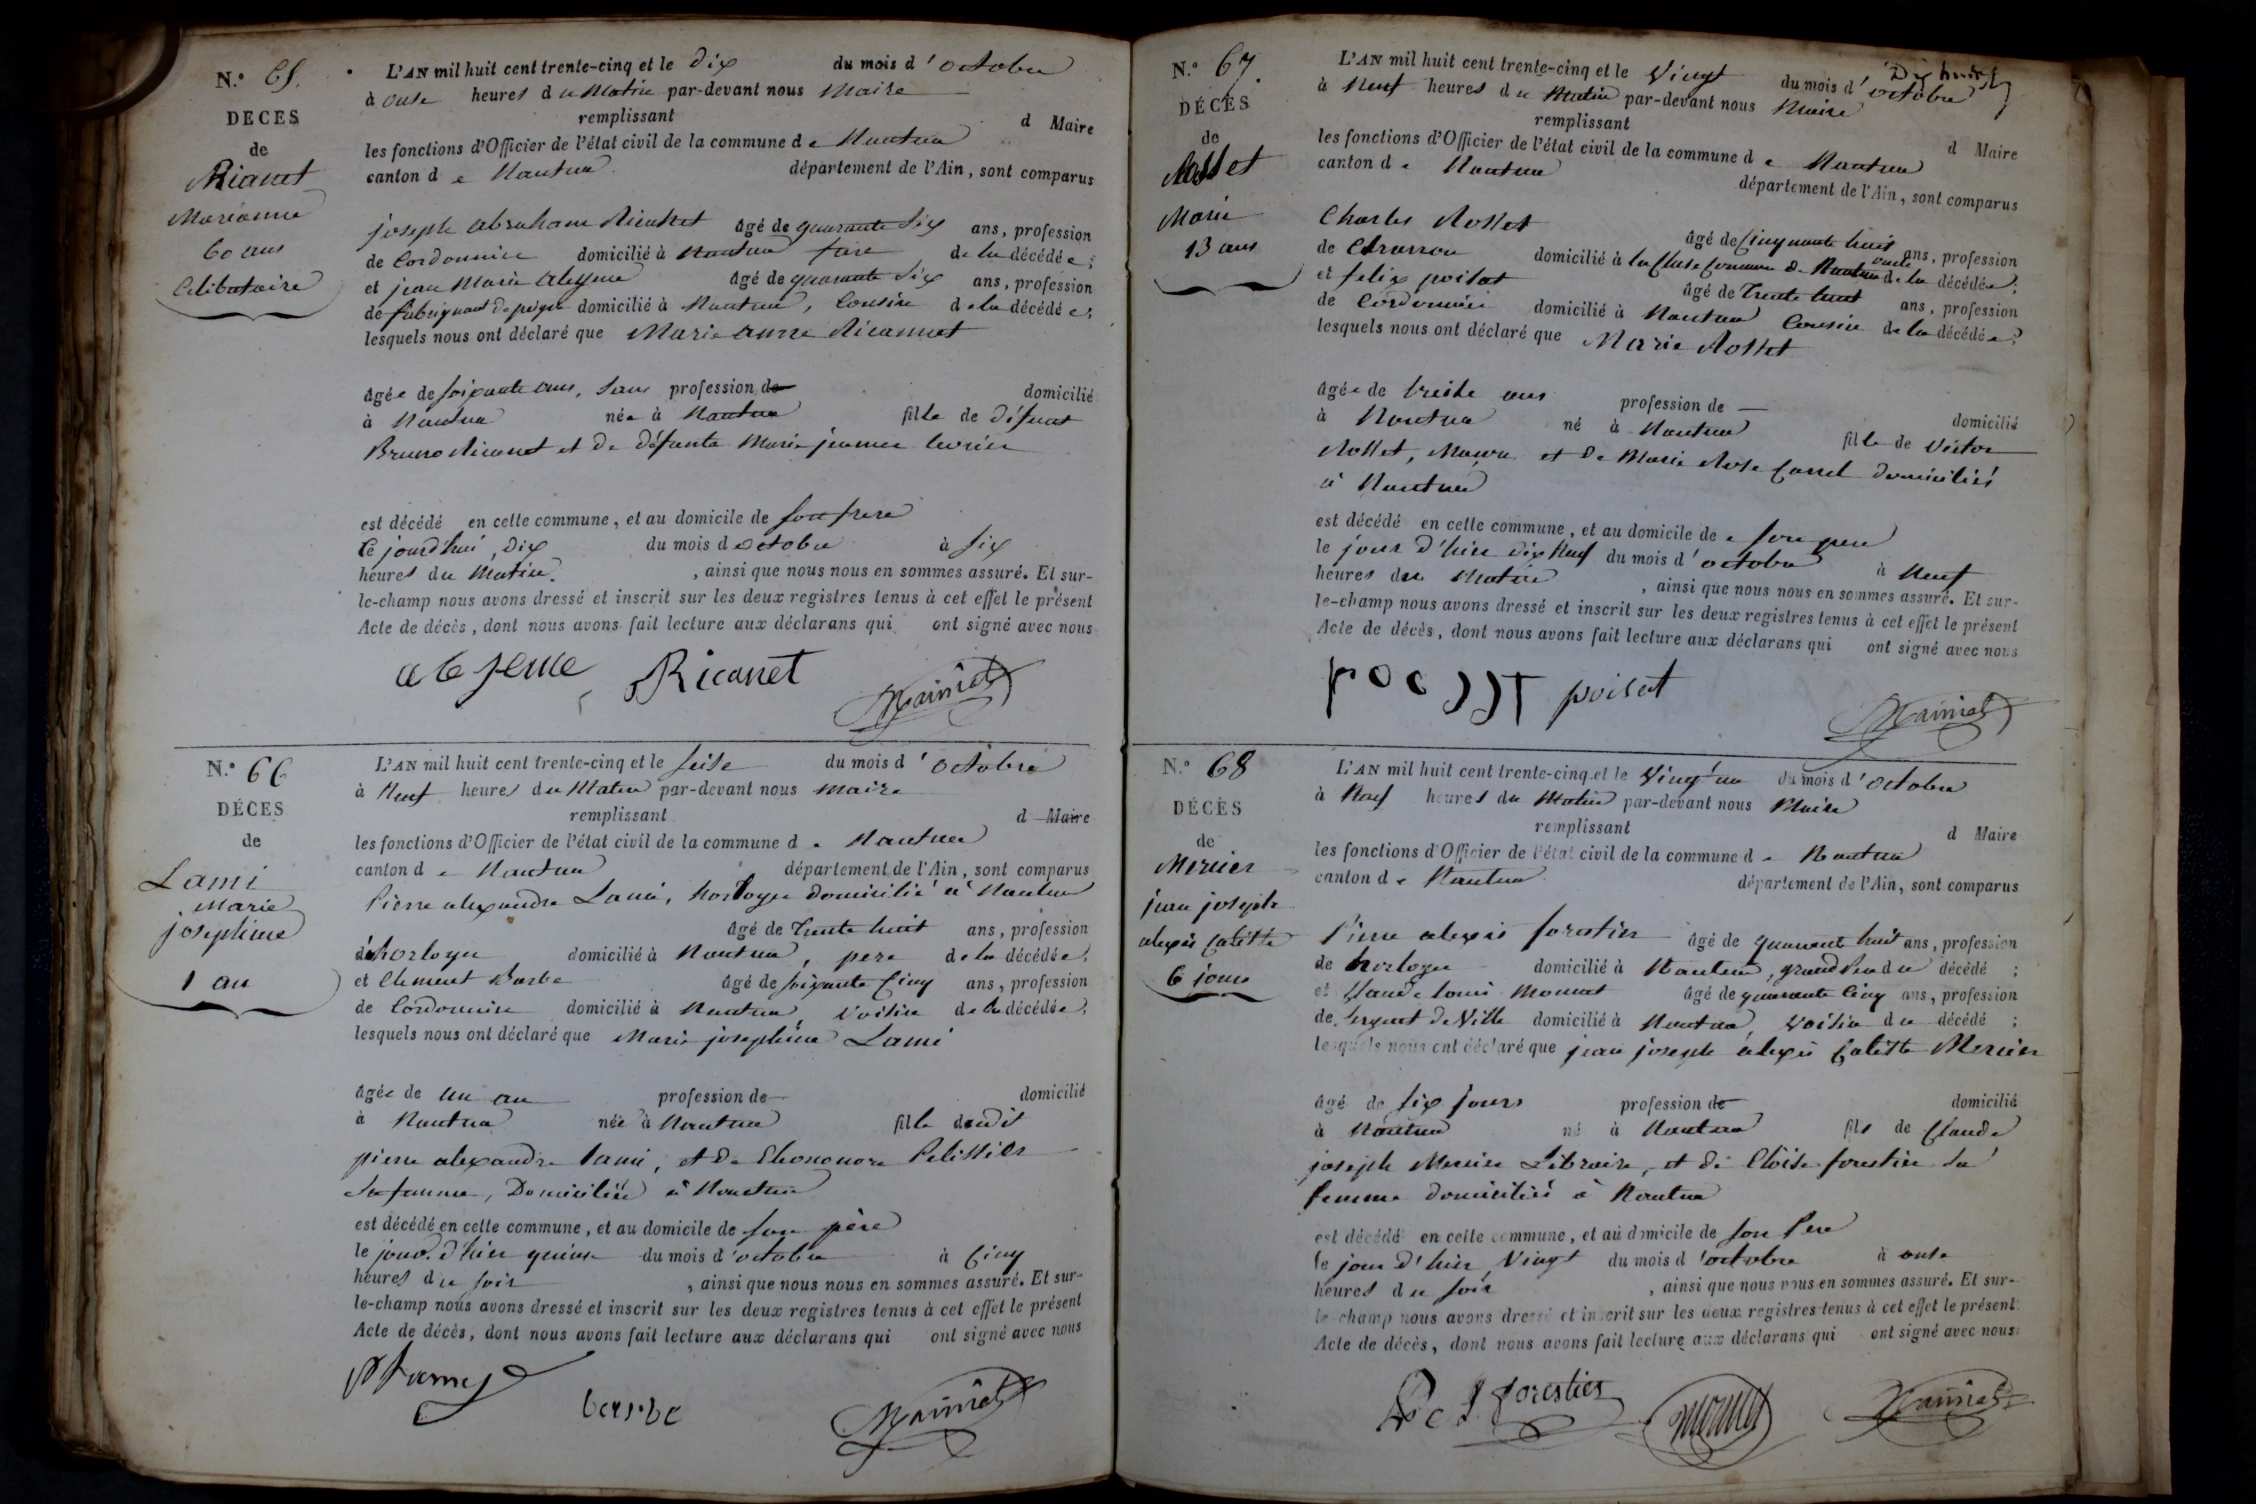 N.° 65.
DECES
de
Ricanet
Marianne
60 ans
Celibataire
L'AN mil huit cent trente-cinq et le dix du mois d'octobre
à onse heures du Matin par-devant nous Maire
remplissant d Maire
les fonctions d'Officier de l'état civil de la commune de Nantua
canton de Nantua département de l'Ain, sont comparus
joseph abraham Ricanet âgé de quarante six ans, profession
de Cordonnier domicilié à Nantua frere de la décédée;
et jean Marie alesme âgé de quarante six ans, profession
de fabriquant de peigne domicilié à Nantua, Cousin de la décédée;
lesquels nous ont déclaré que Marie anne Ricannet
âgée de soixante ans, sans profession de domicilié
à Nantua née à Nantua fille de défunt
Bruno Ricanet et de défunte Marie jeanne
est décédé en cette commune, et au domicile de son frere
Ce jourd'hui, dix du mois d octobre à six
heures du Matin, ainsi que nous nous en sommes assuré. Et sur-
le-champ nous avons dressé et inscrit sur les deux registres tenus à cet effet le présent
Acte de décès, dont nous avons fait lecture aux déclarans qui ont signé avec nous
alesme Ricanet
N.° 66
DÉCES
de
Lami
Marie
josephine
1 an
L'AN mil huit cent trente-cinq et le seise du mois d'octobre
à Neuf heures du Matin par-devant nous maire
remplissant d Maire
les fonctions d'Officier de l'état civil de la commune de Nantua
canton de Nantua département de l'Ain, sont comparus
Pierre alexandre Lami, horloger domicilié à Nantua
âgé de Trente huit ans, profession
d'horloger domicilié à Nantua, pere de la décédée;
et Clement Barbe âgé de soixante Cinq ans, profession
de Cordonnier domicilié à Nantua, Voisin de la décédée;
lesquels nous ont déclaré que Marie josephine Lami
âgée de un an profession de domicilié
à Nantua née à Nantua fille dudit
pierre alexandre Lami, et de Eleononore Pelissier
sa femme, Domiciliés à Nantua
est décédé en cette commune, et au domicile de son père
le jour d'hier quinse du mois d'octobre à Cinq
heures du soir, ainsi que nous nous en sommes assuré. Et sur-
le-champ nous avons dressé et inscrit sur les deux registres tenus à cet effet le présent
Acte de décès, dont nous avons fait lecture aux déclarans qui ont signé avec nous
Lamy
barbe
N.° 67
DÉCÈS
de
Rosset
Marie
13 ans
L'AN mil huit cent trente-cinq et le Vingt du mois d'octobre
à Neuf heures du Matin par-devant nous Maire
remplissant d Maire
les fonctions d'Officier de l'état civil de la commune de Nantua
canton de Nantua département de l'Ain, sont comparus
Charles Rosset âgé de Cinquante huit ans, profession
de Charron domicilié à la Cluse Commune de Nantua oncle de la décédée;
et felix poisat âgé de Trente huit ans, profession
de Cordonnier domicilié à Nantua Cousin de la décédée;
lesquels nous ont déclaré que Marie Rosset
âgée de treise ans profession de domicilié
à Nantua né à Nantua fille de Victor
Rosset, Maçon et de Marie Rose Carrel domiciliés
à Nantua
est décédé en cette commune, et au domicile de son pere
le jour d'hier dix Neuf du mois d'octobre à Neuf
heures du Matin, ainsi que nous nous en sommes assuré. Et sur-
le-champ nous avons dressé et inscrit sur les deux registres tenus à cet effet le présent
Acte de décès, dont nous avons fait lecture aux déclarans qui ont signé avec nous
poisat
N.° 68
DÉCÈS
de
Mercier
jean joseph
alexis Calitte
6 jours
L'AN mil huit cent trente-cinq et le Vingt un du mois d'octobre
à Neuf heures du Matin par-devant nous Maire
remplissant d Maire
les fonctions d'Officier de l'état civil de la commune de Nantua
canton de Nantua département de l'Ain, sont comparus
Pierre alexis forestier âgé de quarante huit ans, profession
de horloger domicilié à Nantua, grand Pere du décédé;
et Claude Louis Mounet âgé de quarante Cinq ans, profession
de Sergent de Ville domicilié à Nantua, Voisin du décédé;
lesquels nous ont déclaré que jean joseph alexis Calitte Mercier
âgé de six jours profession de domicilié
à Nantua né à Nantua fils de Claude
joseph Mercier Libraire, et de Cloise forestier sa
femme domiciliés à Nantua
est décédé en cette commune, et au domicile de son Pere
le jour d'hier Vingt du mois d'octobre à onse
heures du soir, ainsi que nous nous en sommes assuré. Et sur-
le-champ nous avons dressé et inscrit sur les deux registres tenus à cet effet le présent
Acte de décès, dont nous avons fait lecture aux déclarans qui ont signé avec nous
forestier